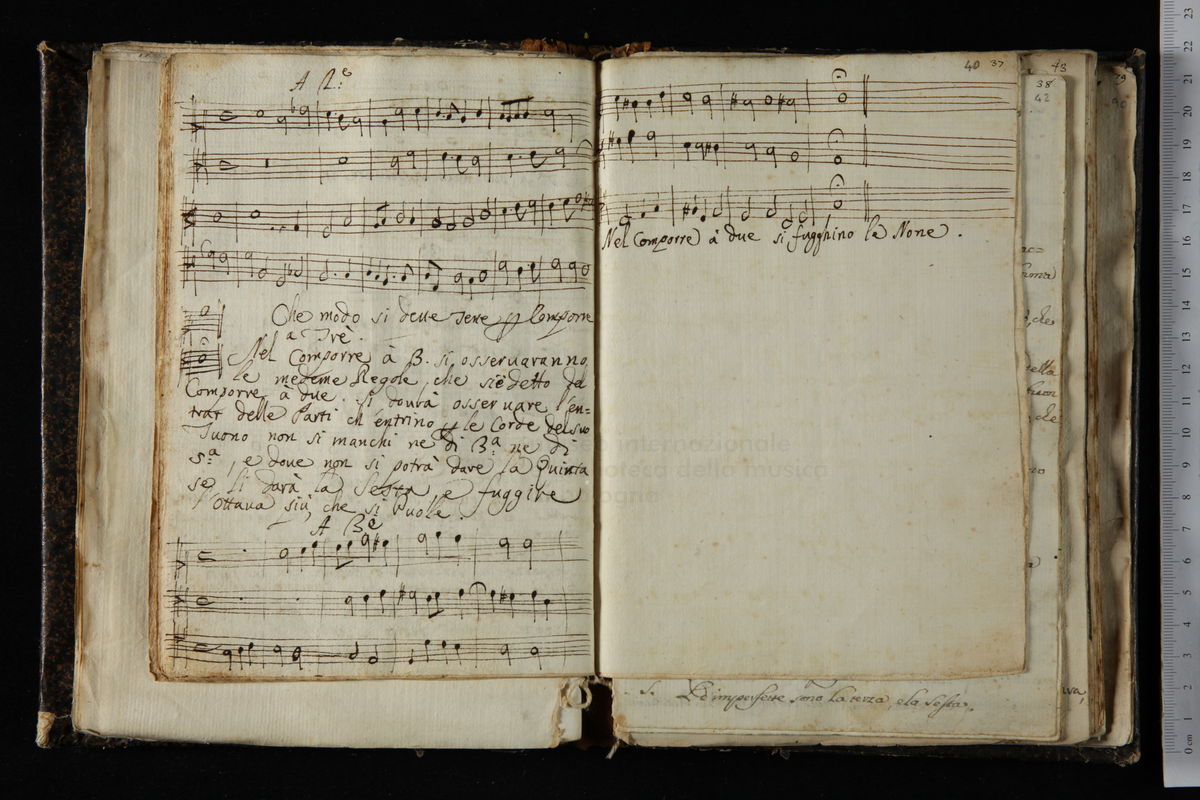 A 2.e
Che modo si deue tene p Comporre
a Trè.
Nel Comporre à 3. si osseruaranno
le medeme Regole, che si è detto del
Comporre à due. Si dourà osseruare l'en=
trar delle Parti ch'entrino p le Corde del suo
Tuono non si manchi ne di 3.a ne di
5.a, e dove non si potrà dare la Quinta
se li darà la Sesta, e fuggire
l'ottaua più, che si Puole.
A 3.e
40 37
Nel Comporre à due si fugghino le None.
43
38
42
che
della
che
5. Le imperfette sono la terza, e la Sesta.
museo internazionale
biblioteca della musica
bologna